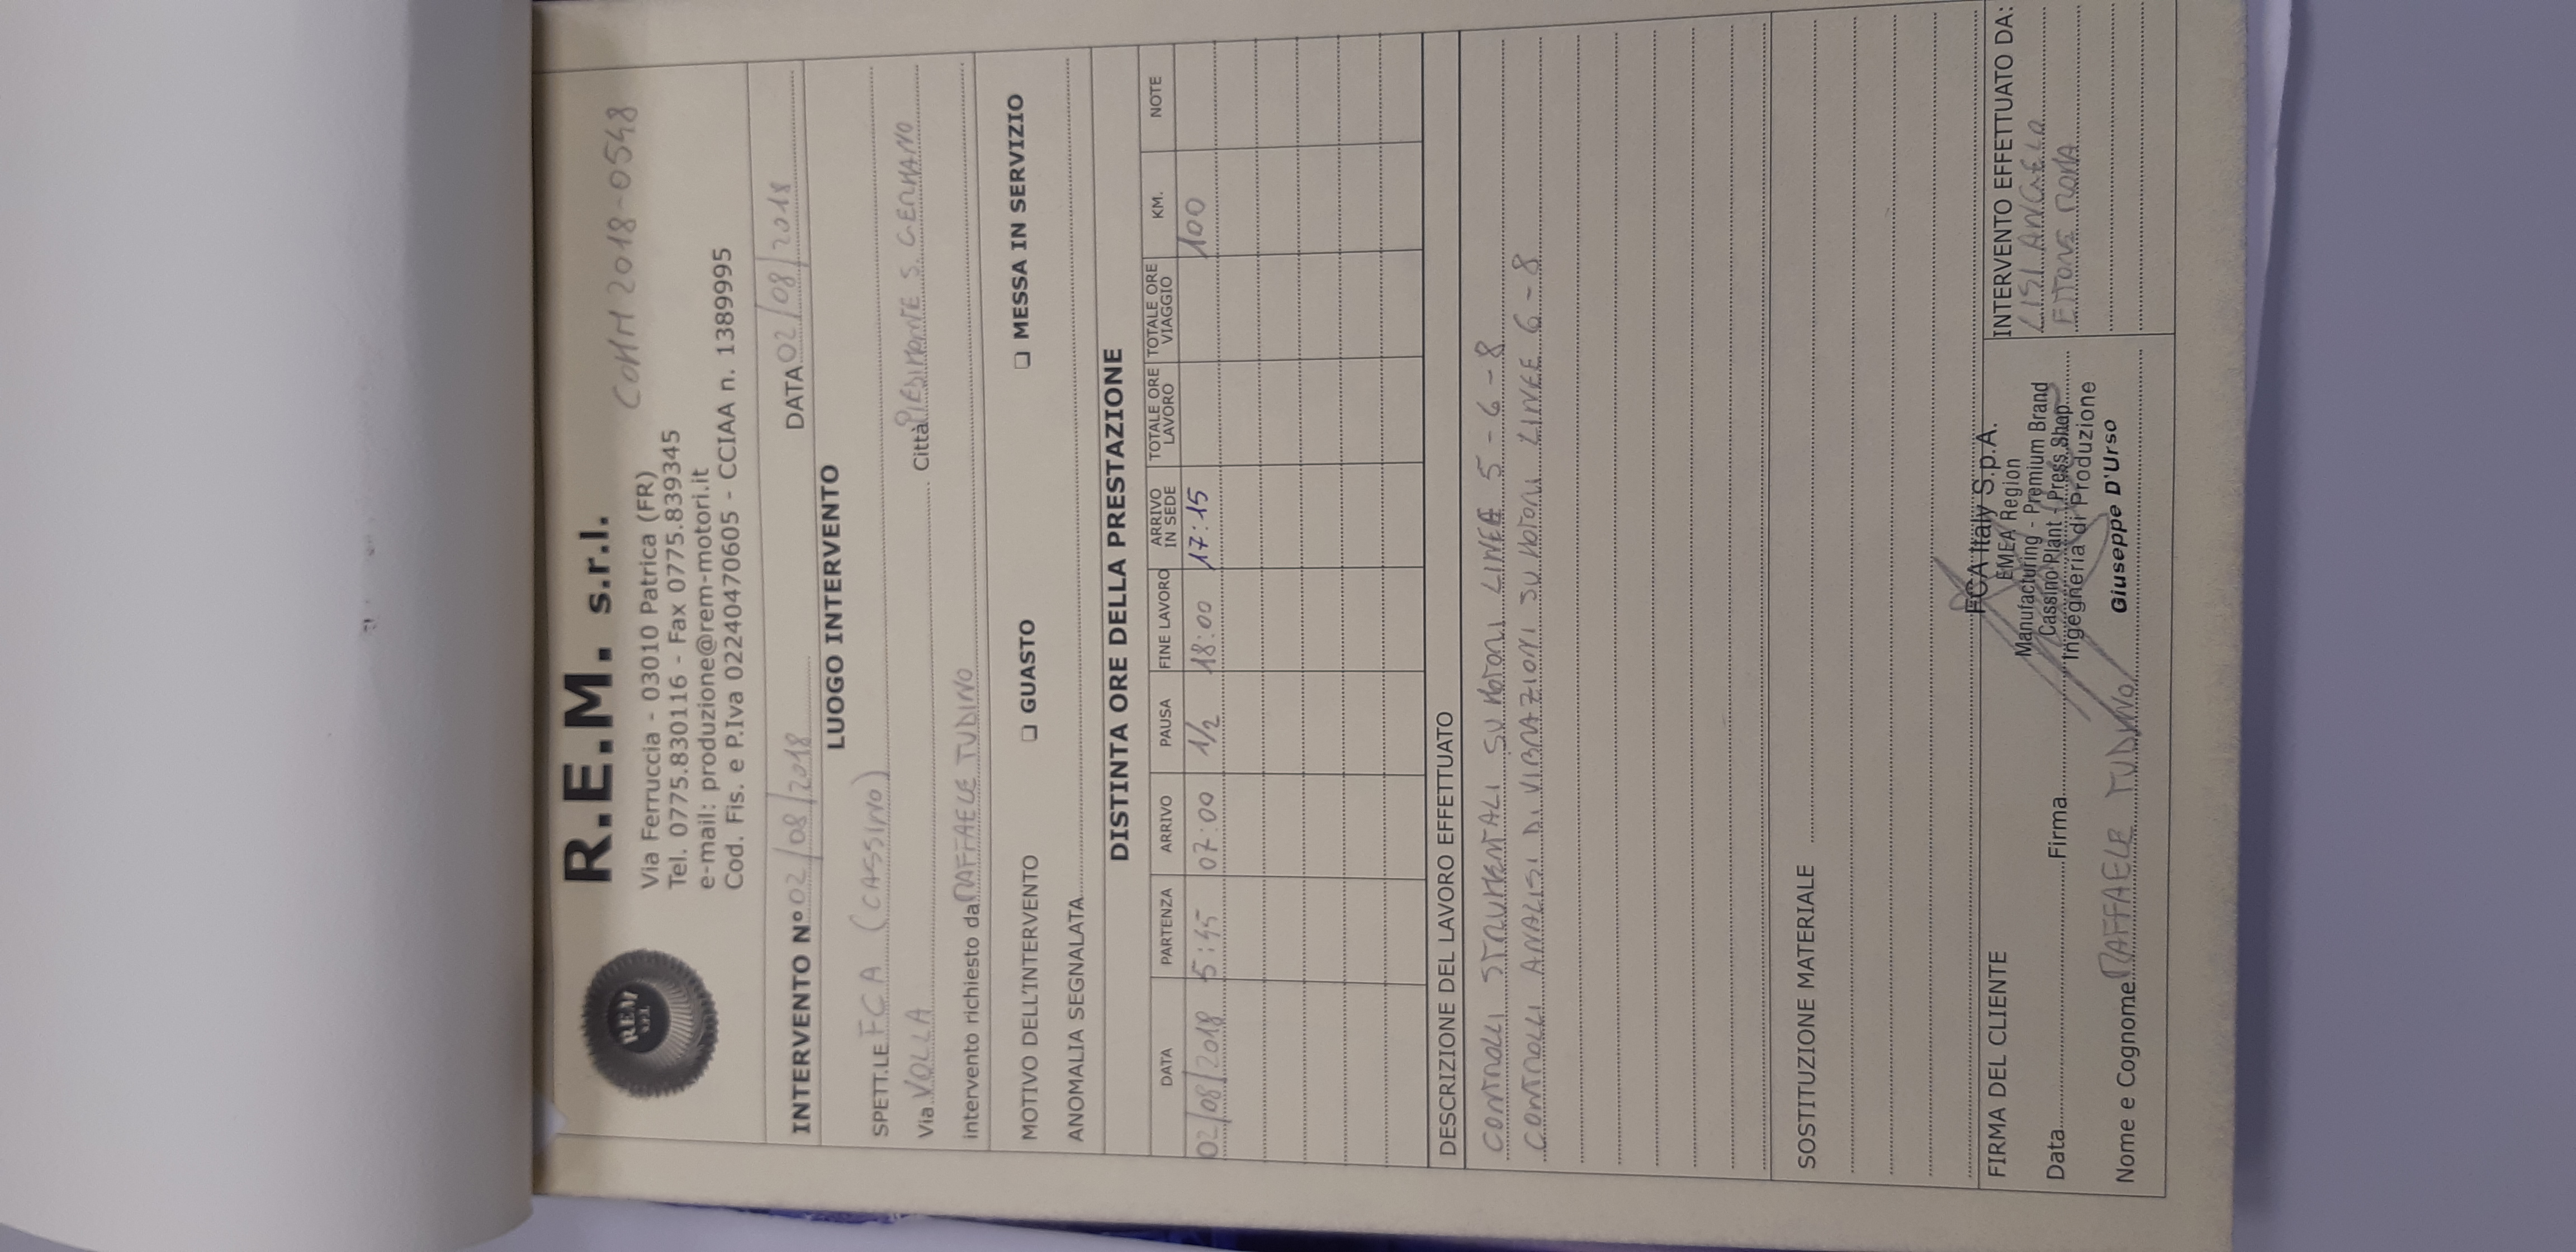 REM
s.r.l.
R.E.M. s.r.l.
Via Ferruccia - 03010 Patrica (FR)
Tel. 0775.830116 - Fax 0775.839345
e-mail: produzione@rem-motori.it
Cod. Fis. e P.Iva 02240470605 - CCIAA n. 1389995
COMM 2018-0548
INTERVENTO N° 02/08/2018 DATA 02/08/2018
LUOGO INTERVENTO
SPETT.LE FCA (CASSINO)
Via VOLLA Città PIEDIMONTE S. GERMANO
intervento richiesto da RAFFAELE TUDINO
MOTIVO DELL'INTERVENTO ❑ GUASTO ❑ MESSA IN SERVIZIO
ANOMALIA SEGNALATA
DISTINTA ORE DELLA PRESTAZIONE
DATA PARTENZA ARRIVO PAUSA FINE LAVORO ARRIVO IN SEDE TOTALE ORE LAVORO TOTALE ORE VIAGGIO KM. NOTE
02/08/2018 5:45 07:00 1/2 18:00 17:15 100
DESCRIZIONE DEL LAVORO EFFETTUATO
CONTROLLI STRUMENTALI SU MOTORI LINEE 5-6-8
CONTROLLI ANALISI DI VIBRAZIONI SU MOTORI LINEE 6-8
SOSTITUZIONE MATERIALE
FIRMA DEL CLIENTE
Data Firma
Nome e Cognome RAFFAELE TUDINO
FCA Italy S.p.A.
EMEA Region
Manufacturing - Premium Brand
Cassino Plant - Press Shop
Ingegneria di Produzione
Giuseppe D'Urso
INTERVENTO EFFETTUATO DA:
LISI ANGELO
ETTORE ROMA